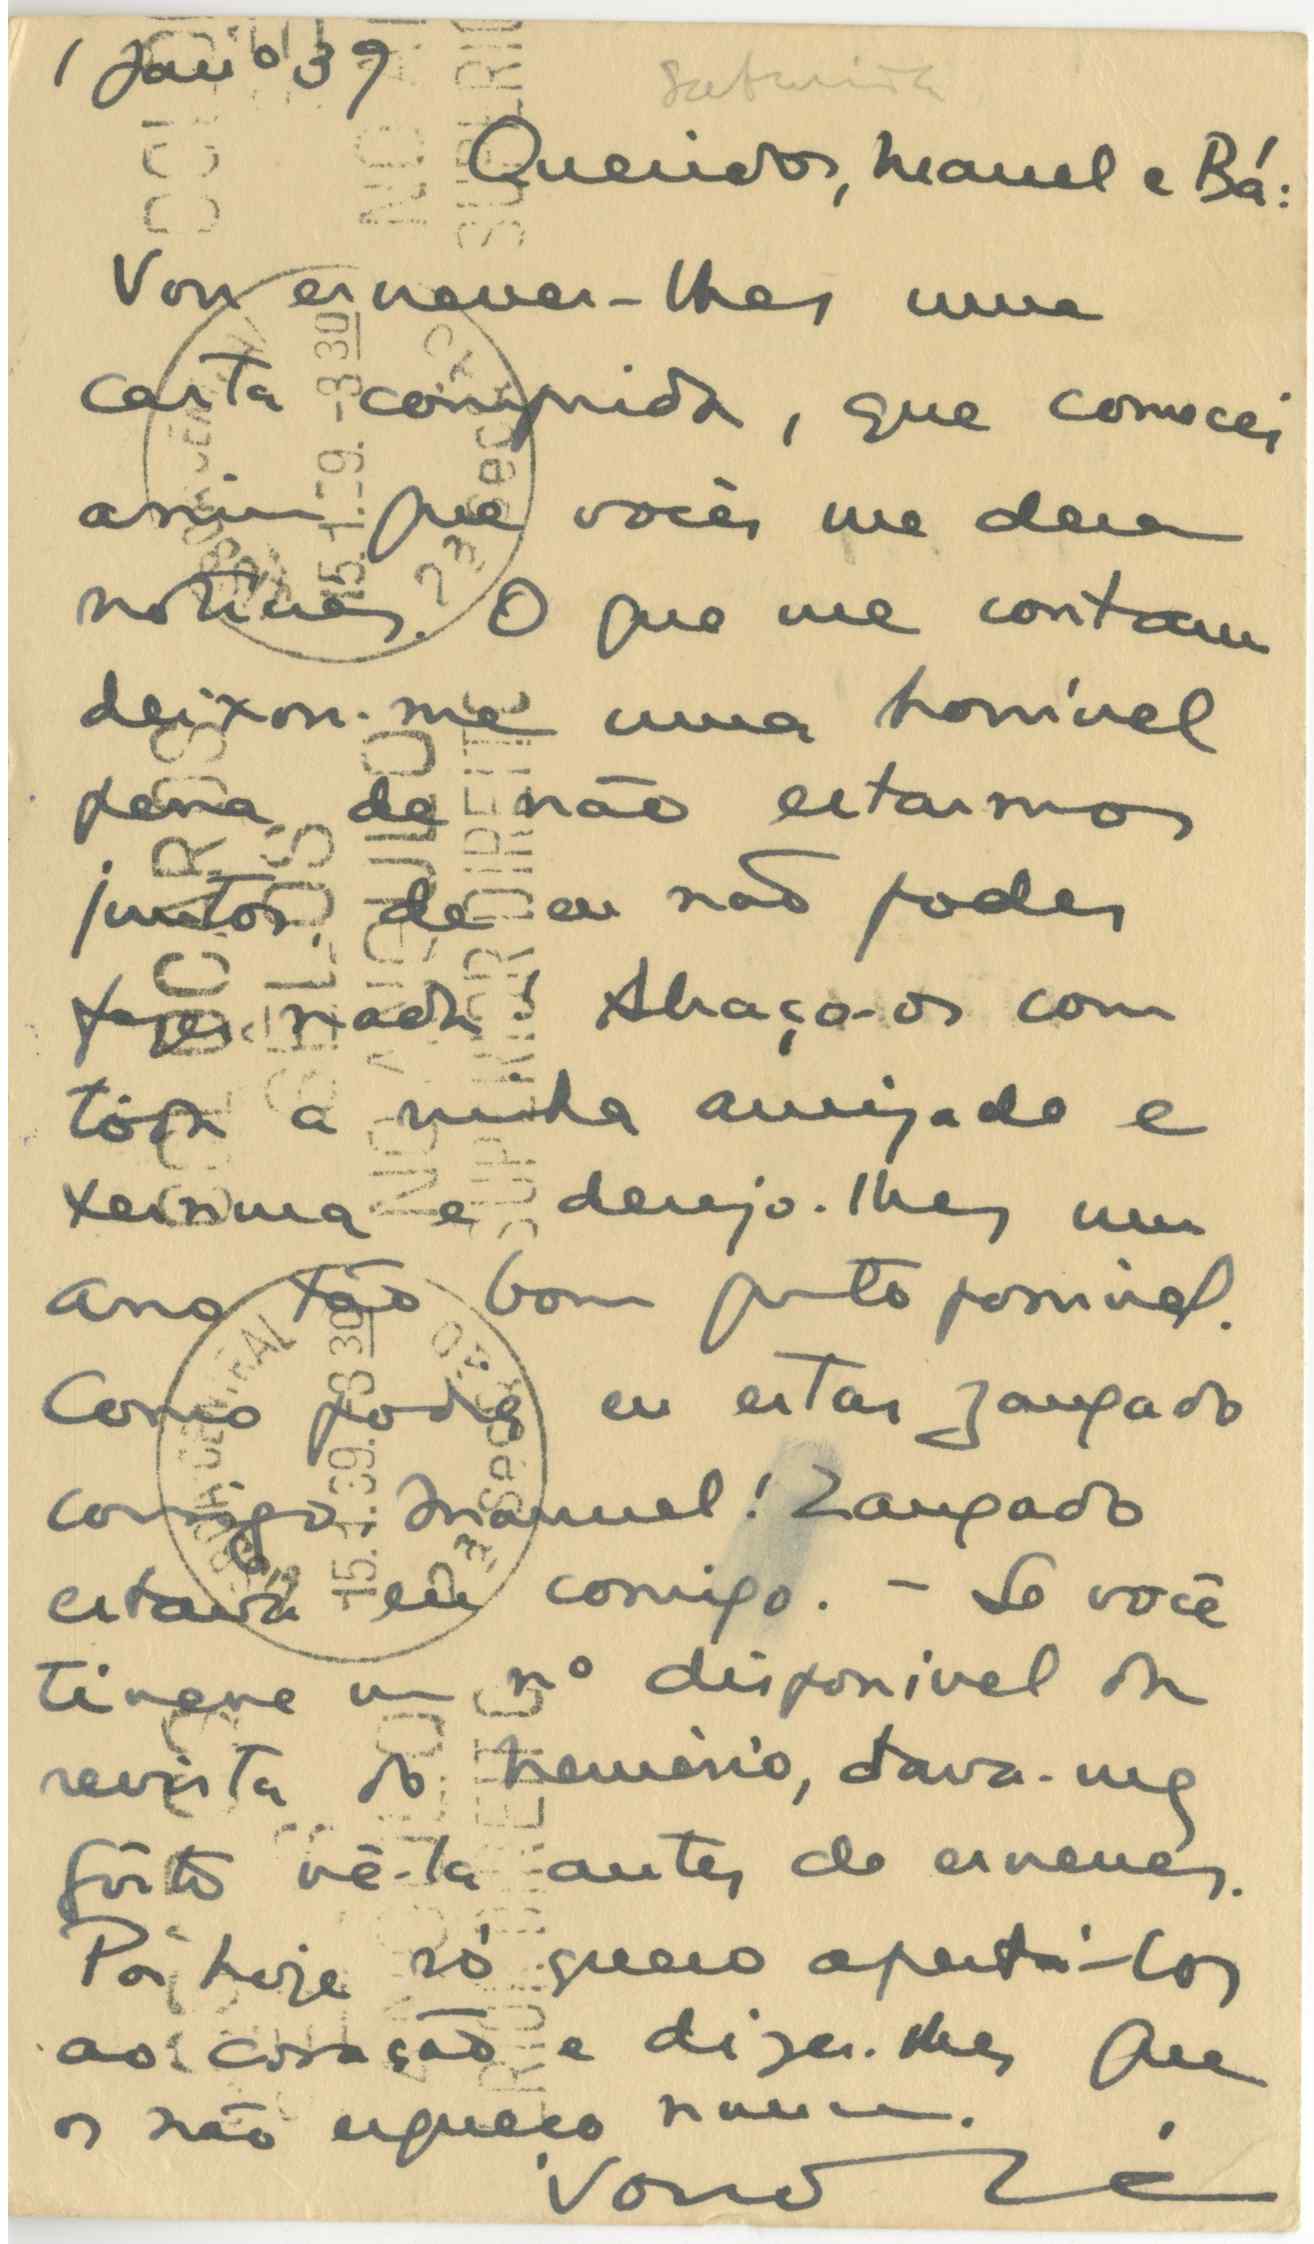 1 Janº 39
Queridos, Manuel e Bá:
Vou escrever-lhes uma
carta comprida, que comecei
assim que vocês me deram
notícias. O que me contam
deixou-me uma horrível
pena de não estarmos
juntos, de eu não poder
fazer nada! Abraço-os com
tôda a minha amizade e
ternura e desejo-lhes um
ano tão bom qto possivel.
Como podia eu estar zangado
comigo, Manuel! Zangado
estava eu comigo. – Se você
tivesse um nº disponivel da
revista do Nemésio, dava-me
gôsto vê-la antes de escrever.
Por hoje só quero apertá-los
ao coração e dizer-lhes que
os não esqueço nunca.
Vosso Zé
15.1.39. -8 30
2ª Secç
NO ANGULO
15.1.39. -8 30